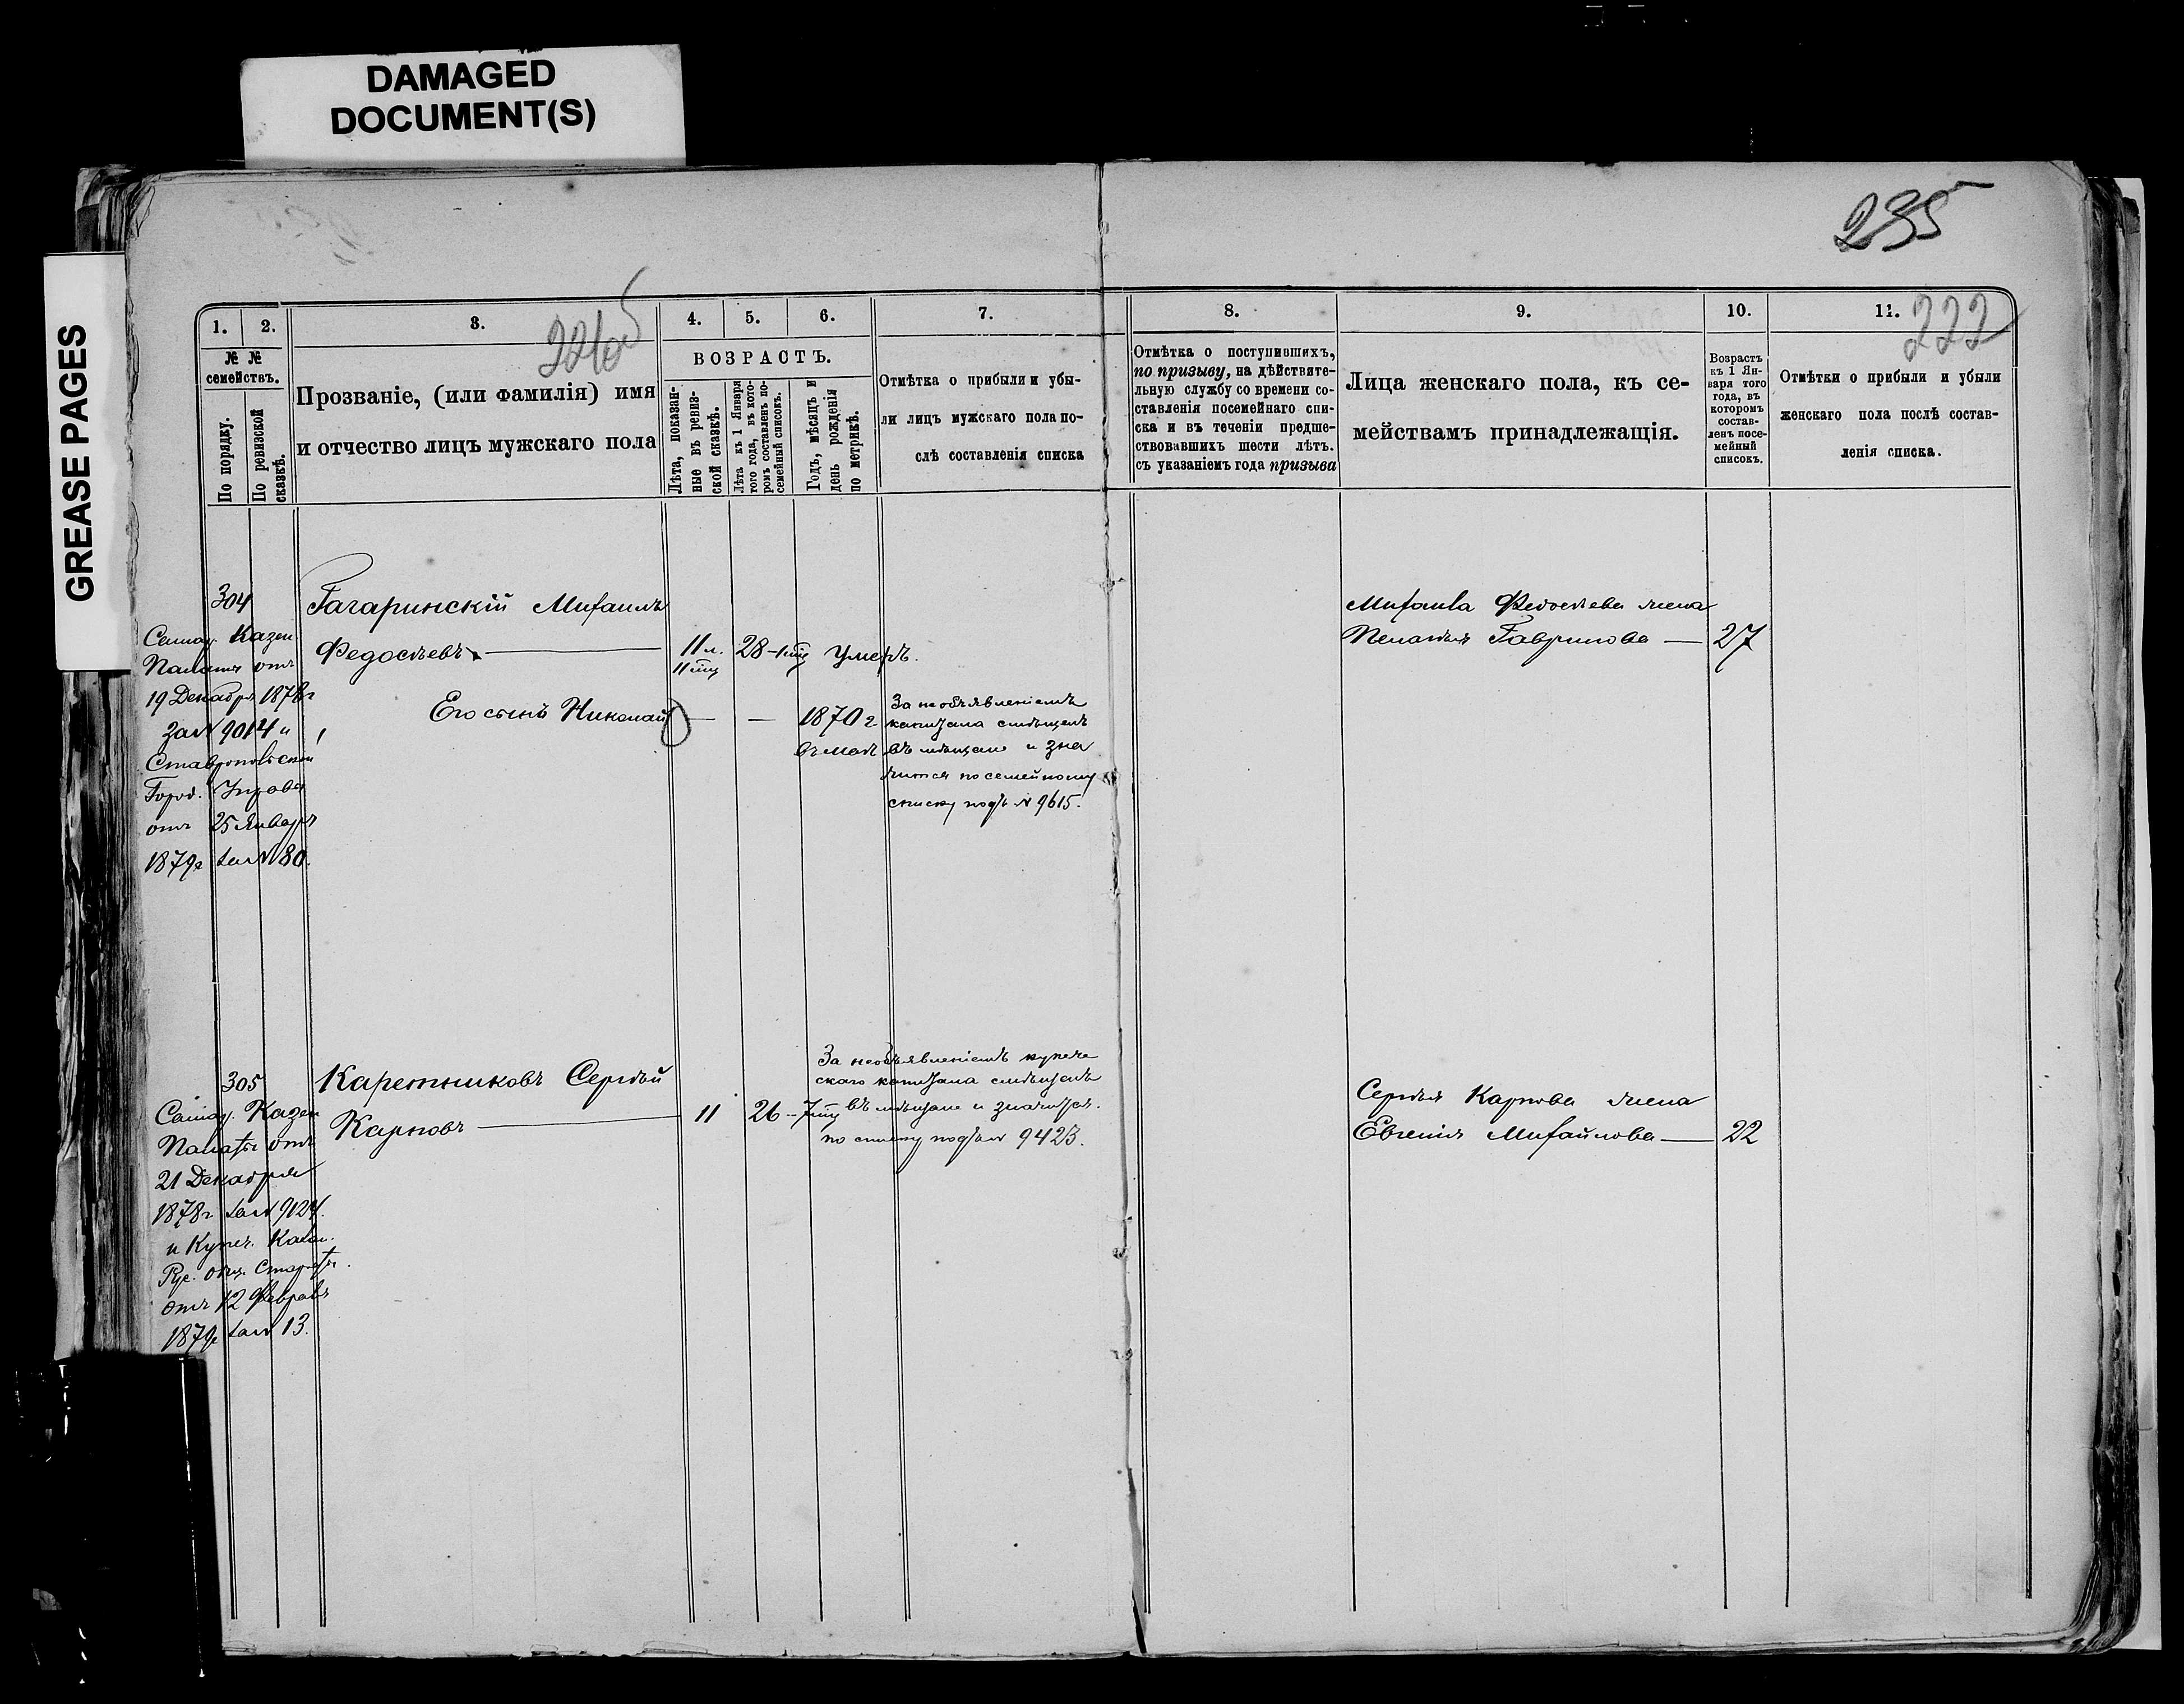 DAMAGED
DOCUMENT(S)
GREASE PAGES
235
1.
2.
3.
4.
5.
6.
7.
8.
9.
10.
11.
222
№ №
семействъ.
По порядку.
По ревизской
сказкѣ.
Прозваніе, (или фамилія) имя
и отчество лицъ мужскаго пола
ВОЗРАСТЪ.
Лѣта, показан-
ные въ ревиз-
ской сказкѣ.
Лѣта къ 1 Января
того года, въ кото-
ромъ составленъ по-
семейный списокъ.
Годъ, мѣсяцъ и
день рожденія
по метрикѣ.
Отмѣтка о прибыли и убы-
ли лицъ мужскаго пола по-
слѣ составленія списка
Отмѣтка о поступившихъ,
по призыву, на дѣйствите-
льную службу со времени со-
ставленія посемейнаго спи-
ска и въ теченіи предше-
ствовавшихъ шести лѣтъ.
съ указаніемъ года призыва
Лица женскаго пола, къ се-
мействамъ принадлежащія.
Возрастъ
къ 1 Ян-
варя того
года, въ
которомъ
состав-
ленъ посе-
мейный
списокъ.
Отмѣтки о прибыли и убыли
женскаго пола послѣ состав-
ленія списка.
304
Гагаринскій Михаилъ
Федосѣевъ
11 л.
11 мц
28
Умеръ.
Его сынъ Николай
1870 г
въ маѣ
За необъявленіемъ
капитала смѣщенъ
въ мѣщане и зна
чится по семейному
списку подъ № 9615.
Михаила Федосѣева жена
Пелагея Гаврилова 27
Самар. Казен
Палаты отъ
19 Декабря 1878 г
за № 9014 и
Ставропольской
Город. Управы
отъ 25 Января
1879 г за № 80.
305
Каретниковъ Сергѣй
Карповъ
11
26 - 7 мц
За необъявленіемъ купече
скаго капитала смѣщенъ
въ мѣщане и значится
по списку подъ № 9423.
Сергѣя Карпова жена
Евгенія Михайлова 22
Самар. Казен
Палаты отъ
21 Декабря
1878 г за № 9124.
и Купеч.
отъ 12 Февраля
1879 г за № 13.